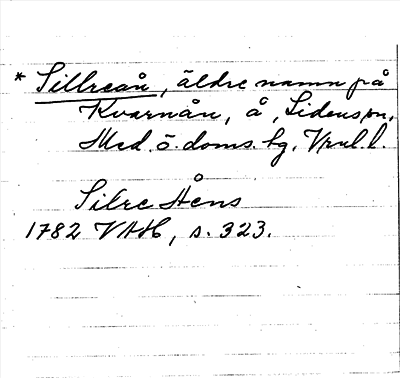 * Sillreån, äldre namn på
Kvarnån, å, Lidens sn,
Med. ö. doms. bg. Vnl. l.
Silre Åens
1782 VAH, s. 323.